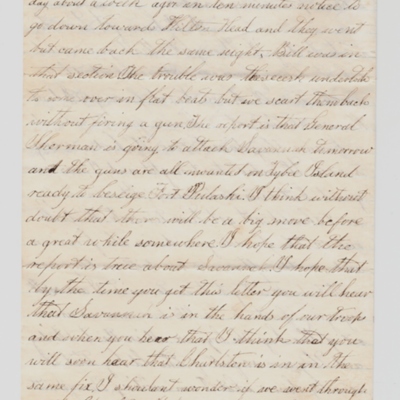 day about a week ago on ten minutes notice to
go down towards Hilton Head and they went
but came back the same night. Bill was in
that section The trouble was the secesh undertook
to come over in flat boats but we scart them back
without firing a gun. The report is that General
Shorman is going to attack Savannah tomorrow
and the guns are all mounted on Tybe Island
ready to beseige Fort Pulaski. I think without
doubt that there will be a big move before
a great while somewhere. I hope that the
report is true about Savannah. I hope that
by the time you get this letter you will hear
that Savannah is in the hands of our troops
and when you hear that I think that you
will soon hear that Charlston is in in the
same fix. I shouldent wonder if we went through